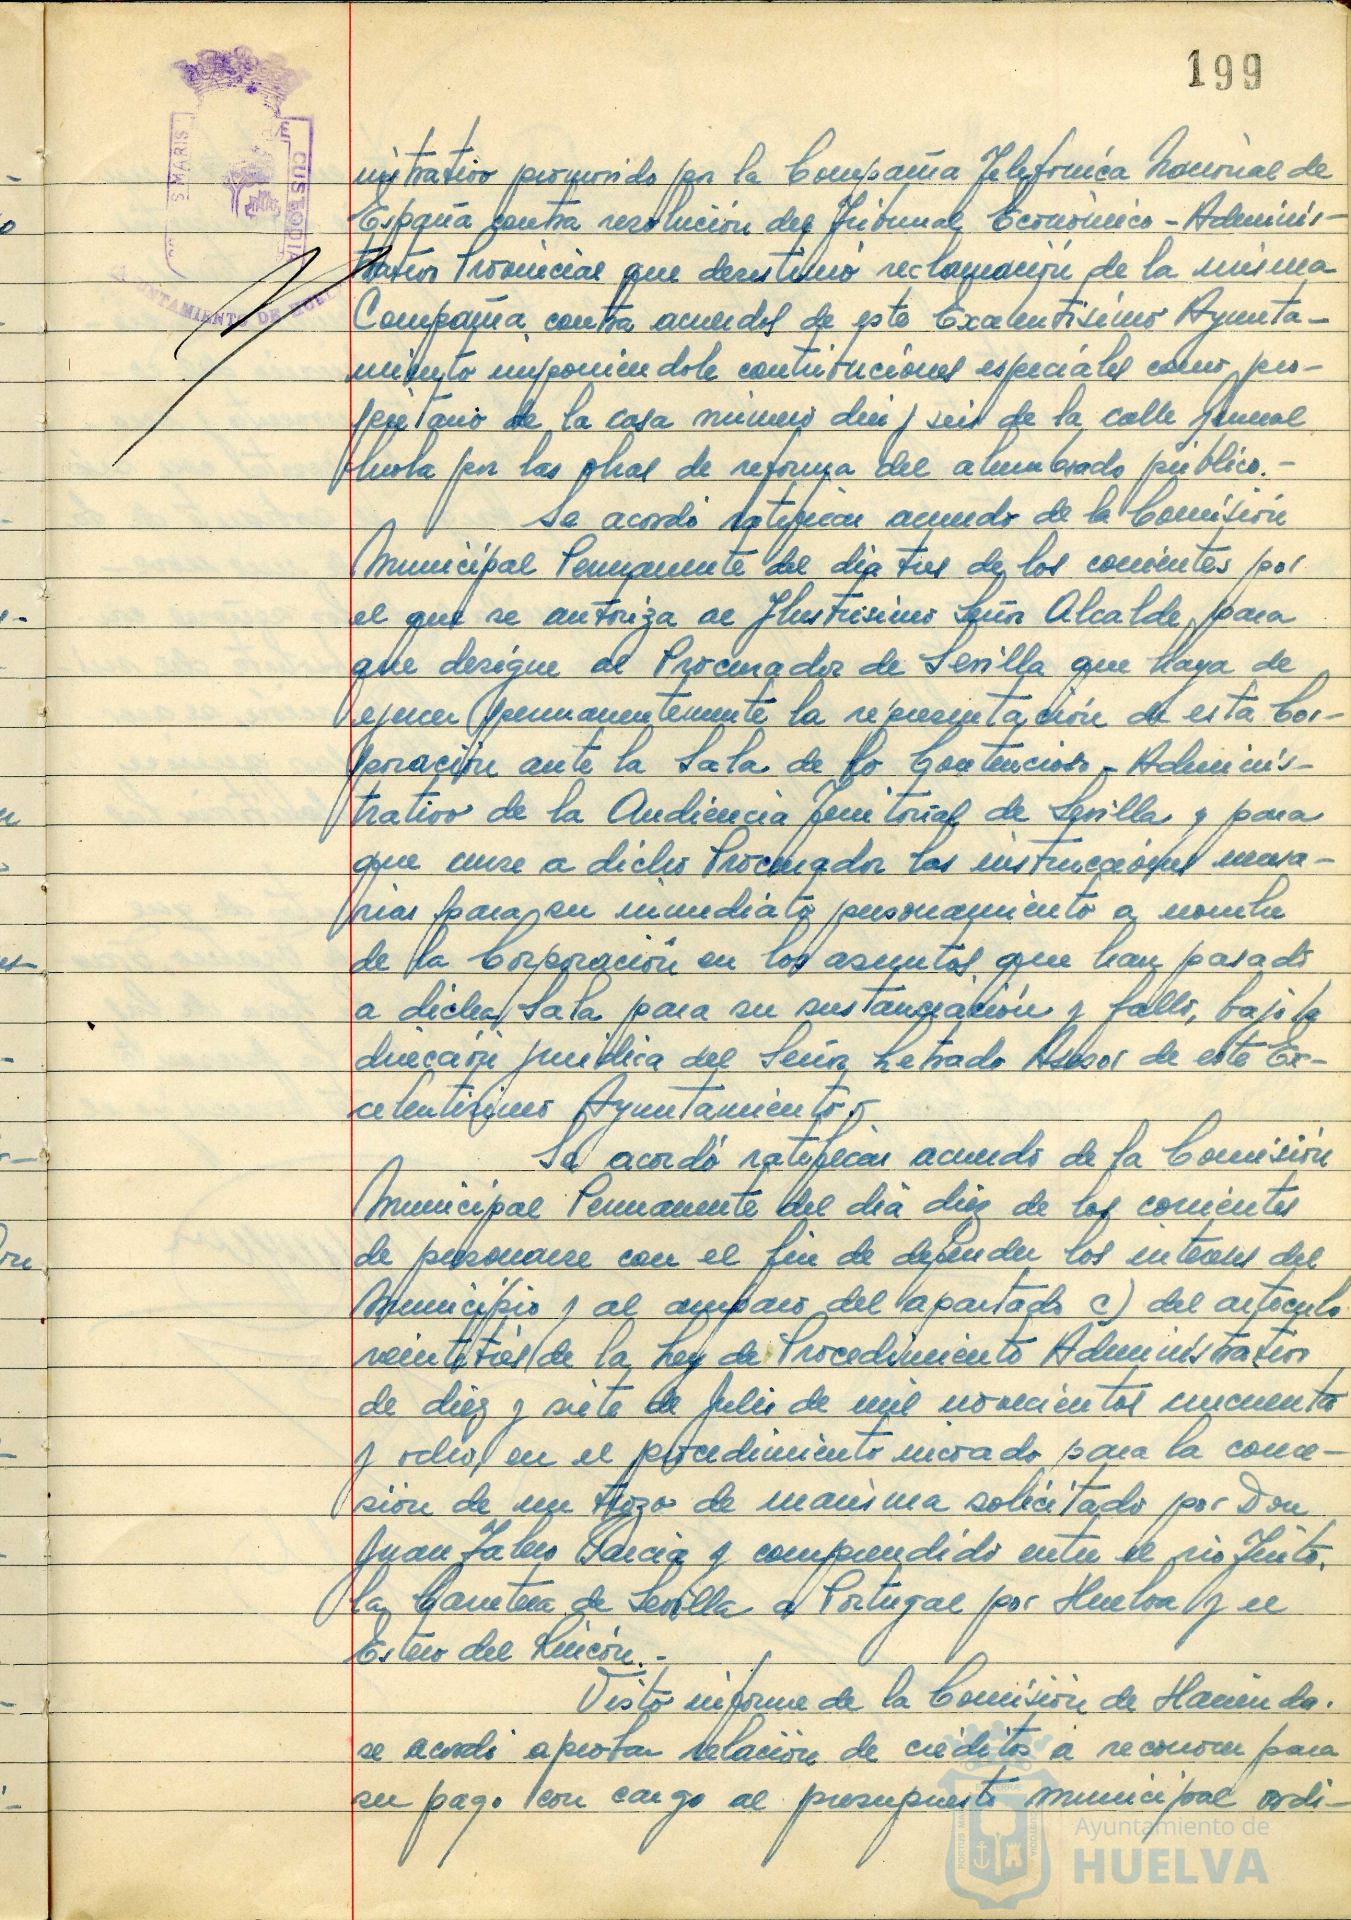 199
S. MARIS
CUSTODIA
AYUNTAMIENTO DE HUELVA
nistrativo promovido por la Compañía Telefónica Nacional de
España contra resolución del Tribunal Económico-Adminis-
trativo Provincial que desestimó reclamación de la misma
Compañía contra acuerdos de este Excelentísimo Ayunta-
miento imponiendole contribuciones especiales como pro-
pietario de la casa número diez y seis de la calle General
Mola por las obras de reforma del alumbrado público.-
Se acordó ratificar acuerdo de la Comisión
Municipal Permanente del dia tres de los corrientes por
el que se autoriza al Ilustrisimo Señor Alcalde, para
que designe al Procurador de Sevilla que haya de
ejercer permanentemente la representación de esta Cor-
poración ante la Sala de lo Contencioso-Adminis-
trativo de la Audiencia Territorial de Sevilla y para
que curse a dicho Procurador las instrucciones necesa-
rias para su inmediato personamiento a nombre
de la Corporación en los asuntos que han pasado
a dicha Sala para su sustanciación y fallo, bajo la
dirección juridica del Señor Letrado Asesor de este Ex-
celentisimo Ayuntamiento.-
Se acordó ratificar acuerdo de la Comisión
Municipal Permanente del dia diez de los corrientes
de personarse con el fin de defender los intereses del
Municipio y al amparo del apartado c) del artículo
veintitrés de la Ley de Procedimiento Administrativo
de diez y siete de Julio de mil novecientos cincuenta
y ocho, en el procedimiento incoado para la conce-
sión de un trozo de marisma solicitado por Don
Juan Talero García y comprendido entre el rio Tinto,
la Carretera de Sevilla a Portugal por Huelva y el
Estero del Rincón.-
Visto informe de la Comisión de Hacienda.
se acordó aprobar relación de créditos a reconocer para
su pago con cargo al presupuesto municipal ordi-
Ayuntamiento de
HUELVA